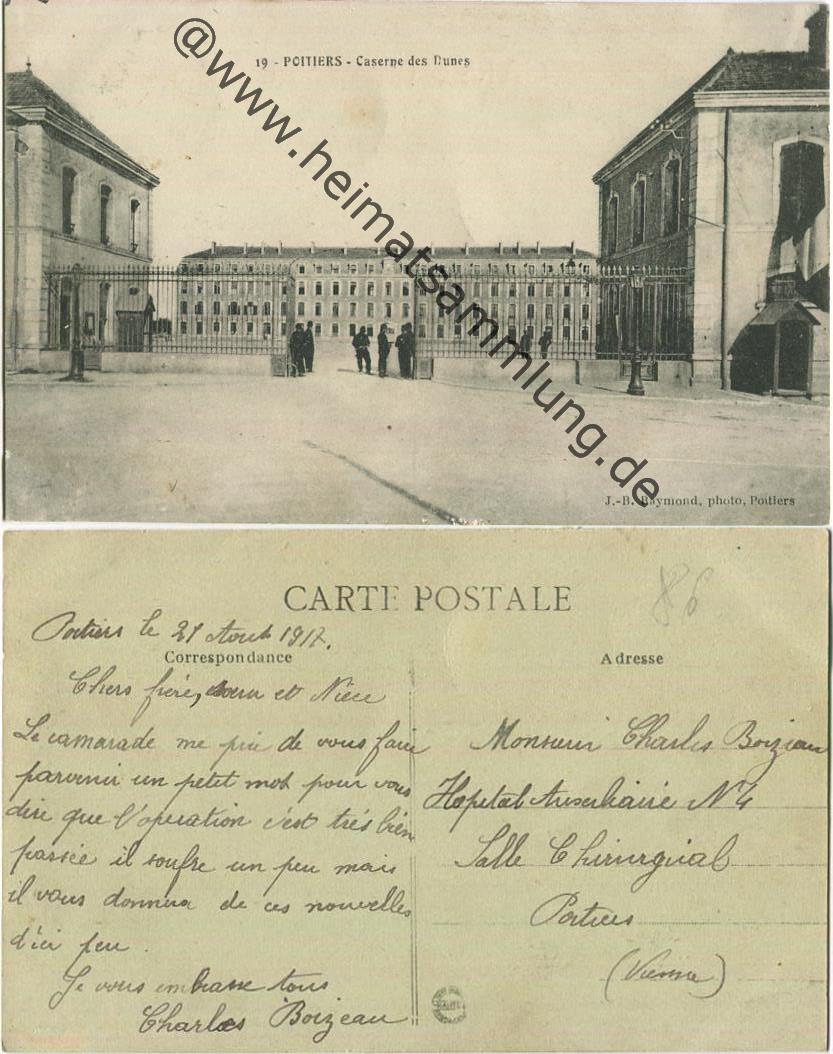 19 - POITIERS - Caserne des Dunes
@www.heimatsammlung.de
J.-B. Raymond, photo, Poitiers
CARTE POSTALE
86
Poitiers le 21 Aout 1917.
Correspondance
Chers frère, sœur et Nièce
Le camarade me prie de vous faire
parvenir un petit mot pour vous
dire que l'operation c'est très bien
passée il soufre un peu mais
il vous donnera de ces nouvelles
d'ici peu.
Je vous embrasse tous
Charles Boizeau
Adresse
Monsieur Charles Boizeau
Hopital Auxerliaire N 4
Salle Chirurguial
Poitiers
(Vienne)